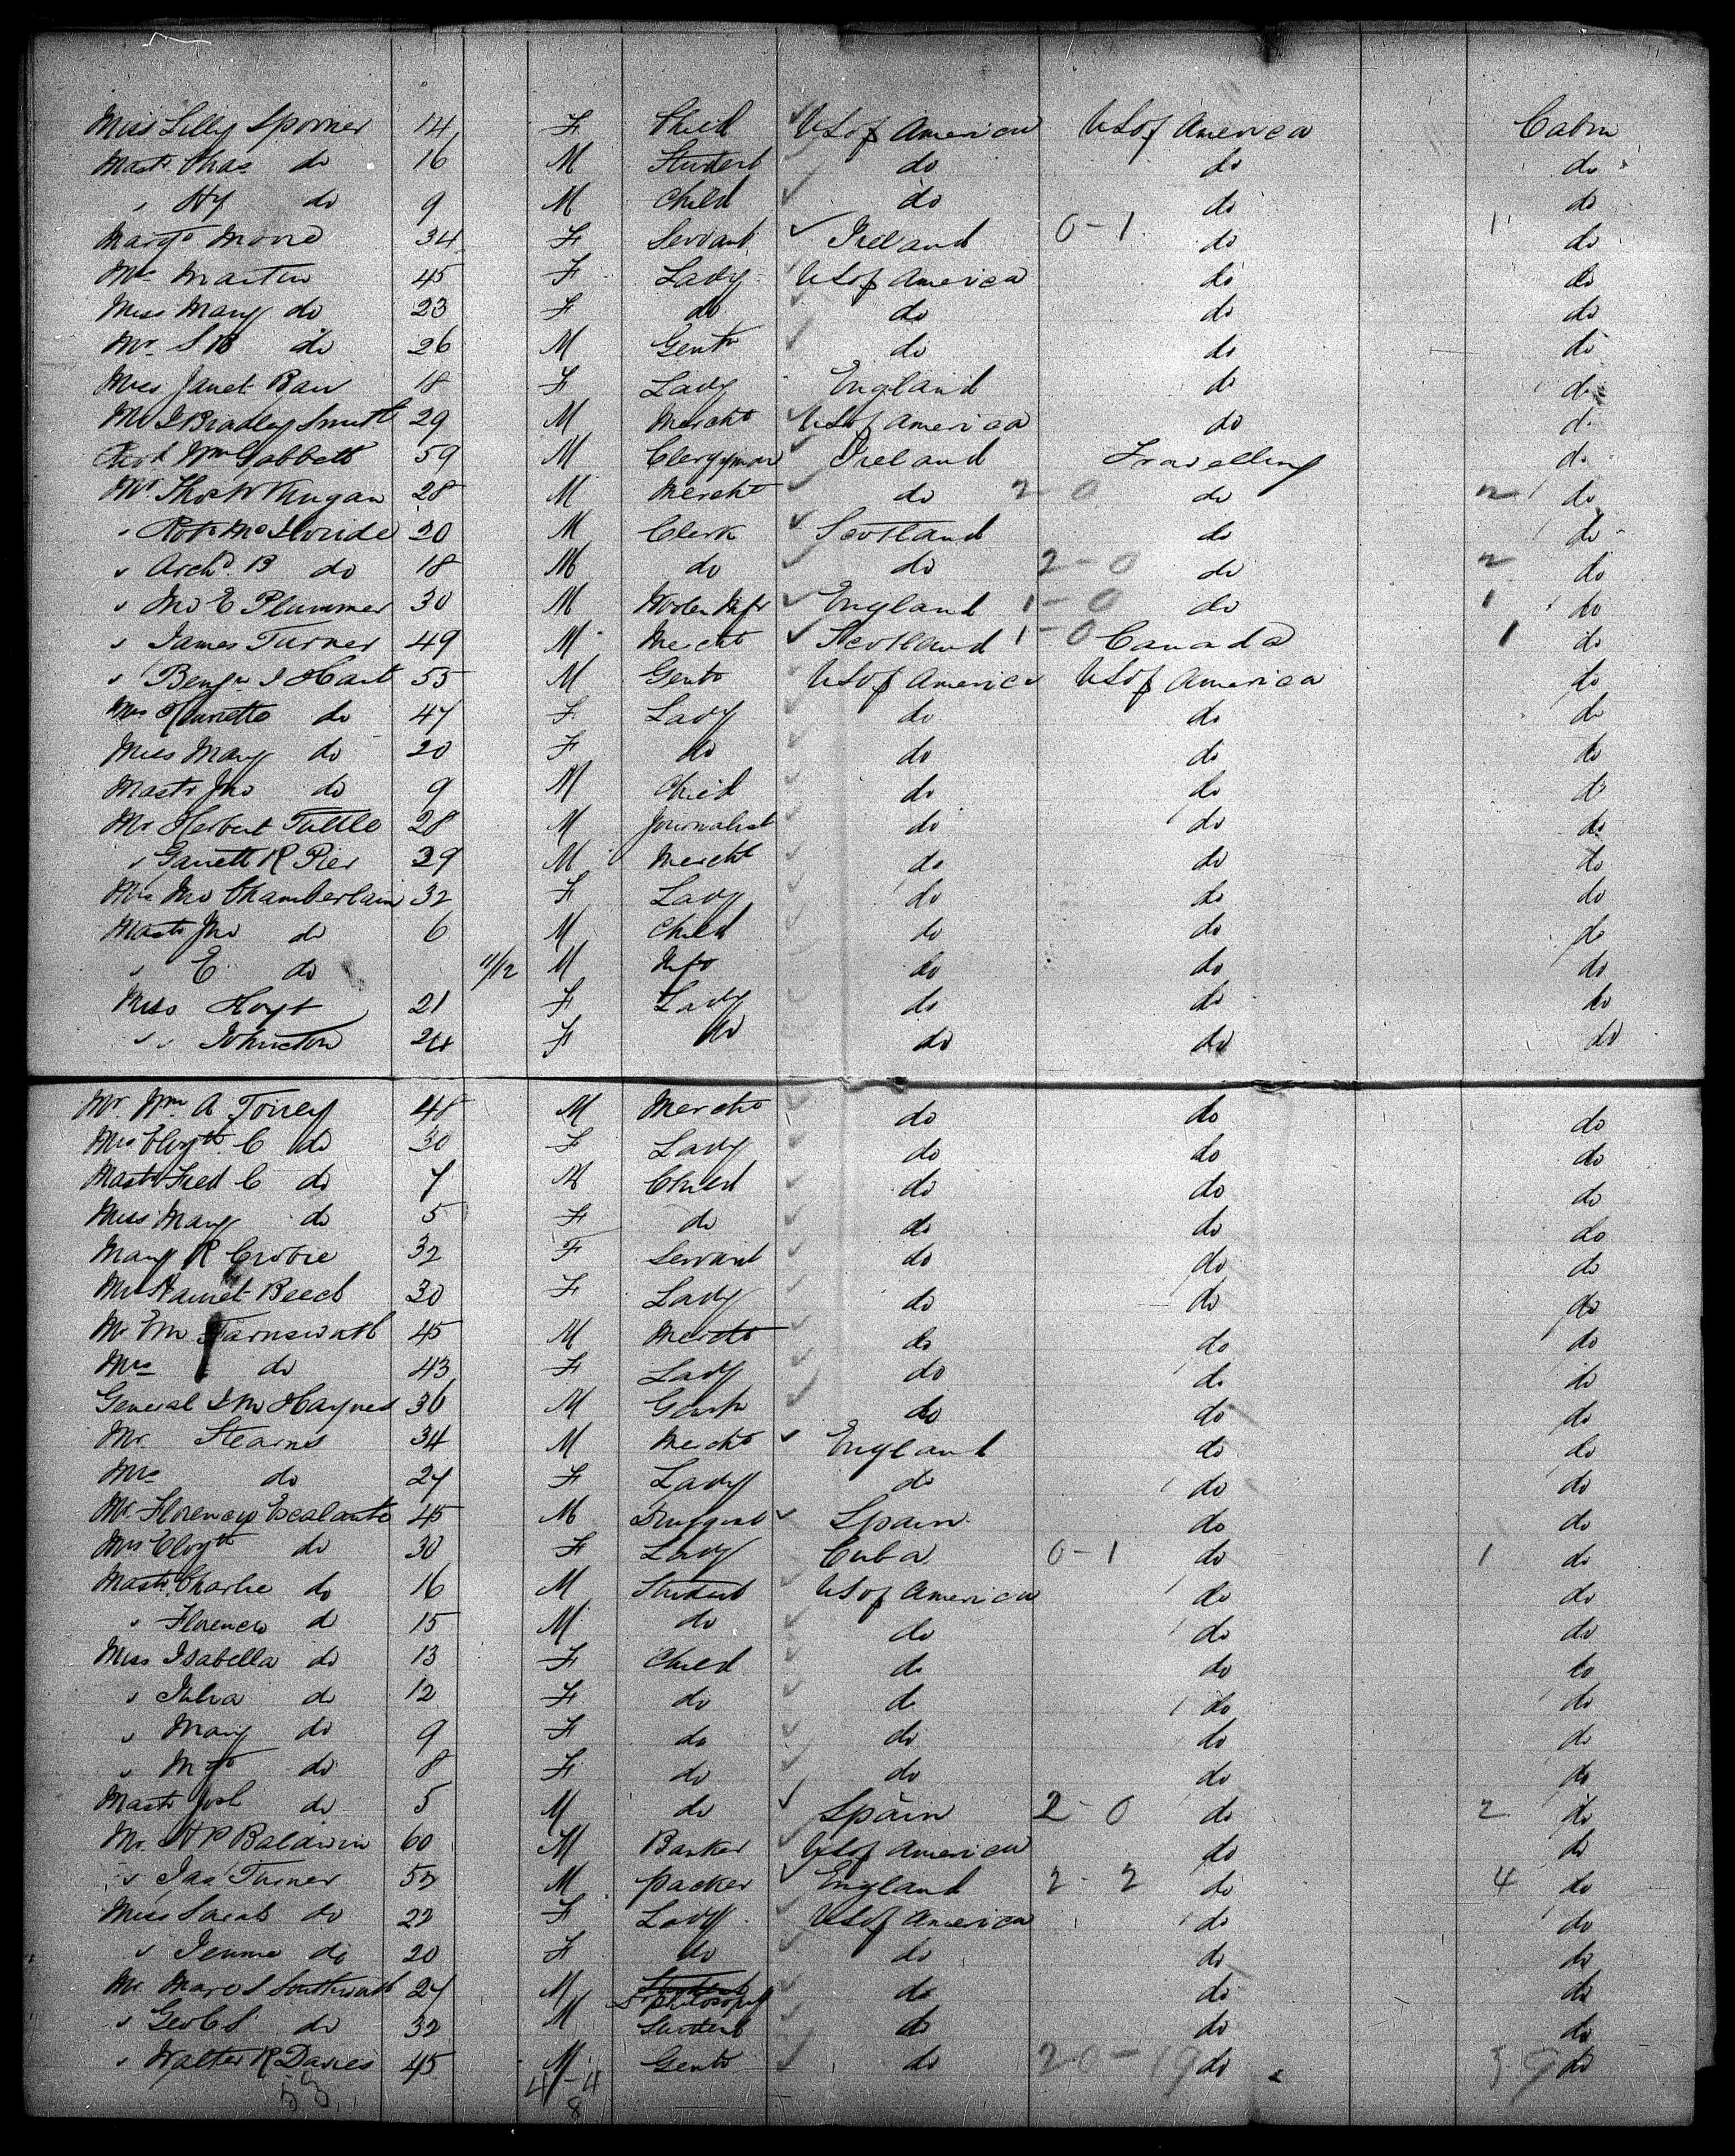 Miss Lilly Sporner 14 F Child US of America US of America Cabin
Mastr Chas do 16 M Student do do do
" Hy do 9 M Child do do do
Margt Moore 34 F Servant Ireland 0-1 do 1 do
Mrs Martin 45 F Lady US of America do do
Miss Mary do 23 F do do do do
Mr S B do 26 M Gentn do do do
Miss Janet 18 F Lady England do do
Mr J Bradley Smith 29 M Mercht US of America do do
Wm Gabbett 59 M Clergyman Ireland Travelling do
Mr Thos W 28 M Mercht do 2-0 do 2 do
" Robt 20 M Clerk Scotland do do
" Archd B do 18 M do do 2-0 do 2 do
" Jno E Plummer 30 M Woolen Mfr England 1-0 do 1 do
" James Turner 49 M Mercht Scotland 1-0 Canada 1 do
" Benjn I Hart 55 M Gentn US of America US of America do
Mrs Henrietta do 47 F Lady do do do
Miss Mary do 20 F do do do do
Mastr Jno do 9 M Child do do do
Mr Herbert Tuttle 28 M Journalist do do do
" Garrett R Pier 29 M Mercht do do do
Mrs Jno Chamberlain 32 F Lady do do do
Mastr Jno do 6 M Child do do do
" E do 11/12 M Inft do do do
Miss Hoyt 21 F Lady do do do
" " Johnston 24 F do do do do
Mr. Wm A Torrey 48 M Mercht do do do
Mrs Elizth C do 30 F Lady do do do
Mastr Fred C do 7 M Child do do do
Miss Mary do 5 F do do do do
Mary R 32 F Servant do do do
Mrs Harriet Beech 30 F Lady do do do
Mr E M Farnsworth 45 M Mercht do do do
Mrs do 43 F Lady do do do
General J M Haynes 36 M Gentn do do do
Mr. Stearns 34 M Mercht England do do
Mrs do 27 F Lady do do do
Mr. Florencio Escalante 45 M Druggist Spain do do
Mrs Elizth do 30 F Lady Cuba 0-1 do 1 do
Mastr Charlie do 16 M Student US of America do do
" Florencio do 15 M do do do do
Miss Isabella do 13 F Child do do do
" Julia do 12 F do do do do
" Mary do 9 F do do do do
" Mgt do 8 F do do do do
Mastr Josh do 5 M do Spain 2-0 do 2 do
Mr. H P Baldwin 60 M Banker US of America do do
" Jas Turner 52 M packer England 2-2 do 4 do
Miss Sarah do 22 F Lady US of America do do
" Jennie do 20 F do do do do
Mr. Marc S Southworth 27 M philosophy do do do
" Geo C S do 32 M Student do do do
" Walter R Davies 45 M Gentn do 20-19 do 39 do
53 4-4
8